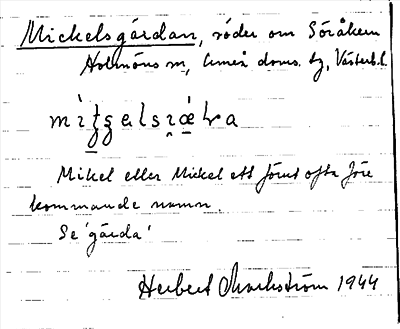 Mickelsgårdan, söder om Söråkern
Holmöns sn, Umeå doms. sg, Västerb. l.
Mikel eller Mickel ett förut ofta före
kommande namn.
Se 'gårda'
Herbert Markström 1944